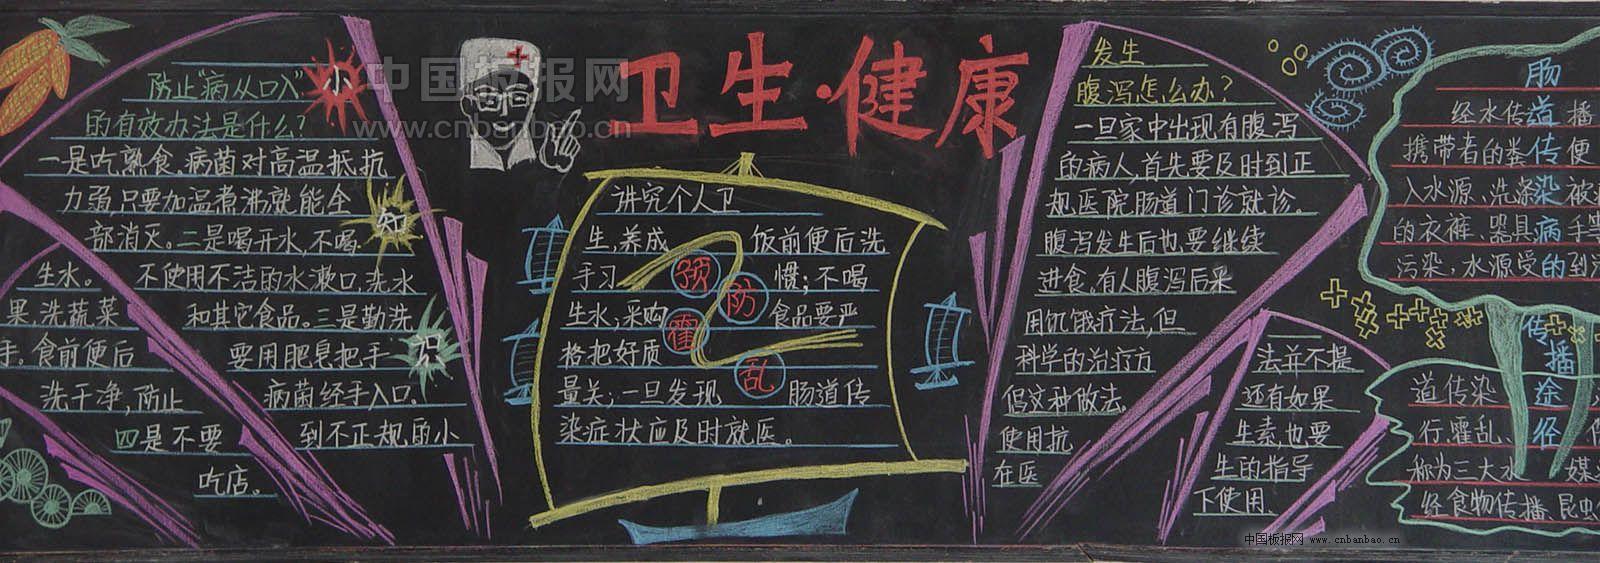 卫生·健康
中国板报网
www.cnbanbao.cn
防止"病从口入"
的有效办法是什么?
一是吃熟食。病菌对高温抵抗
力弱,只要加温煮沸就能全
部消灭。二是喝开水,不喝
生水。 不使用不洁的水漱口,洗水
果、洗蔬菜 和其它食品。三是勤洗
手。食前便后 要用肥皂把手
洗干净,防止 病菌经手入口。
四是不要 到不正规的小
吃店。
小
知
识
讲究个人卫
生,养成 饭前便后洗
手习 惯;不喝
生水;采购 食品要严
格把好质
量关;一旦发现 肠道传
染症状应及时就医。
预
防
霍
乱
发生
腹泻怎么办?
一旦家中出现有腹泻
的病人,首先要及时到正
规医院肠道门诊就诊。
腹泻发生后也要继续
进食。有人腹泻后采
用饥饿疗法,但
科学的治疗方 法并不提
倡这种做法。 还有如果
使用抗 生素,也要
在医 生的指导
下使用。
肠
道
传
染
病
的
传
播
途
径
经水传播
携带者的粪便
入水源、洗涤被
的衣裤、器具手等
污染,水源受到污
道传染
行,霍乱、
称为三大水 媒
经食物传播、昆虫
中国板报网 www.cnbanbao.cn